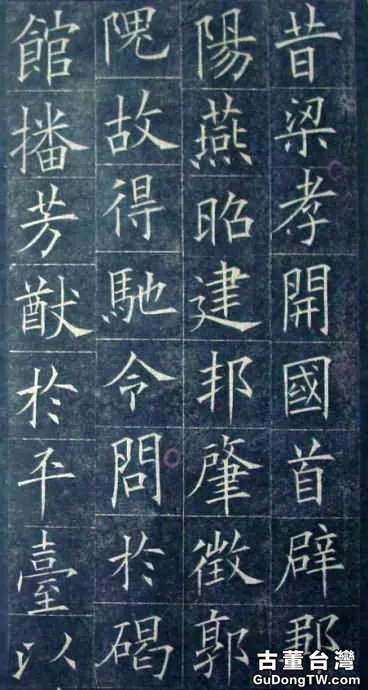 昔梁孝開國首辟鄒
陽燕昭建邦肇徵郭
隗故得馳令問於碣
館播芳猷於平臺以
古董台灣
GuDongTW.com